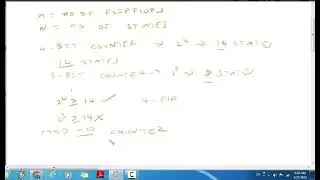 n = NO OF FLIPFLOPS
N = NO. OF STATES
4-BIT COUNTER → 2⁴ → 16 STATES
14 STATES
3-BIT COUNTER → 2³ → 8 STATES
2⁴ ≥ 14 ✓ 4-F/F
2³ ≥ 14 X
MOD-10 COUNTER